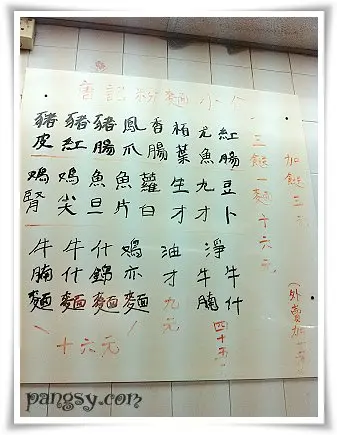 唐記粉麵小介
豬皮
豬紅
豬腸
鳳爪
香腸
栢葉
尤魚
紅腸
鳮腎
鳮尖
魚旦
魚片
蘿白
生才
九才
豆卜
牛腩麵
牛什麵
什錦麵
鳮亦麵
十六元
油才九元
淨牛腩
牛什
三餸一麵十六元
加餸三元
(外賣加一
pangsy.com